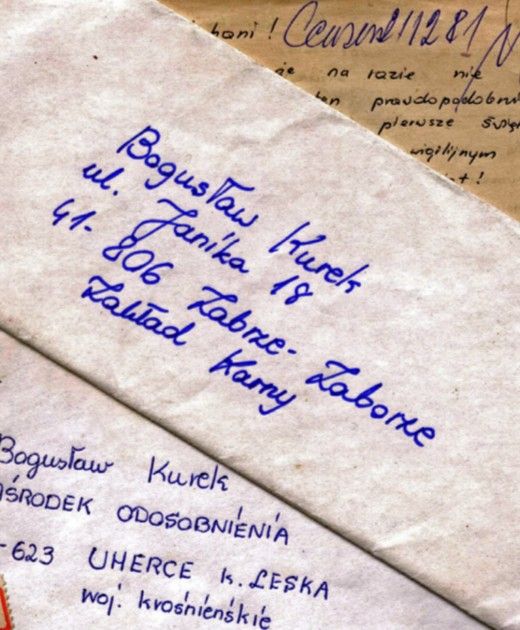 hani! Censura 211281
że na razie nie
ten prawdopodobni
pierwsze Świę
wigilijnym
t!
Bogusław Kurek
ul. Janika 18
41-806 Zabrze-Zaborze
Zakład Karny
Bogusław Kurek
OŚRODEK ODOSOBNIÉNIA
-623 UHERCE k. LESKA
woj. krośnieńskie